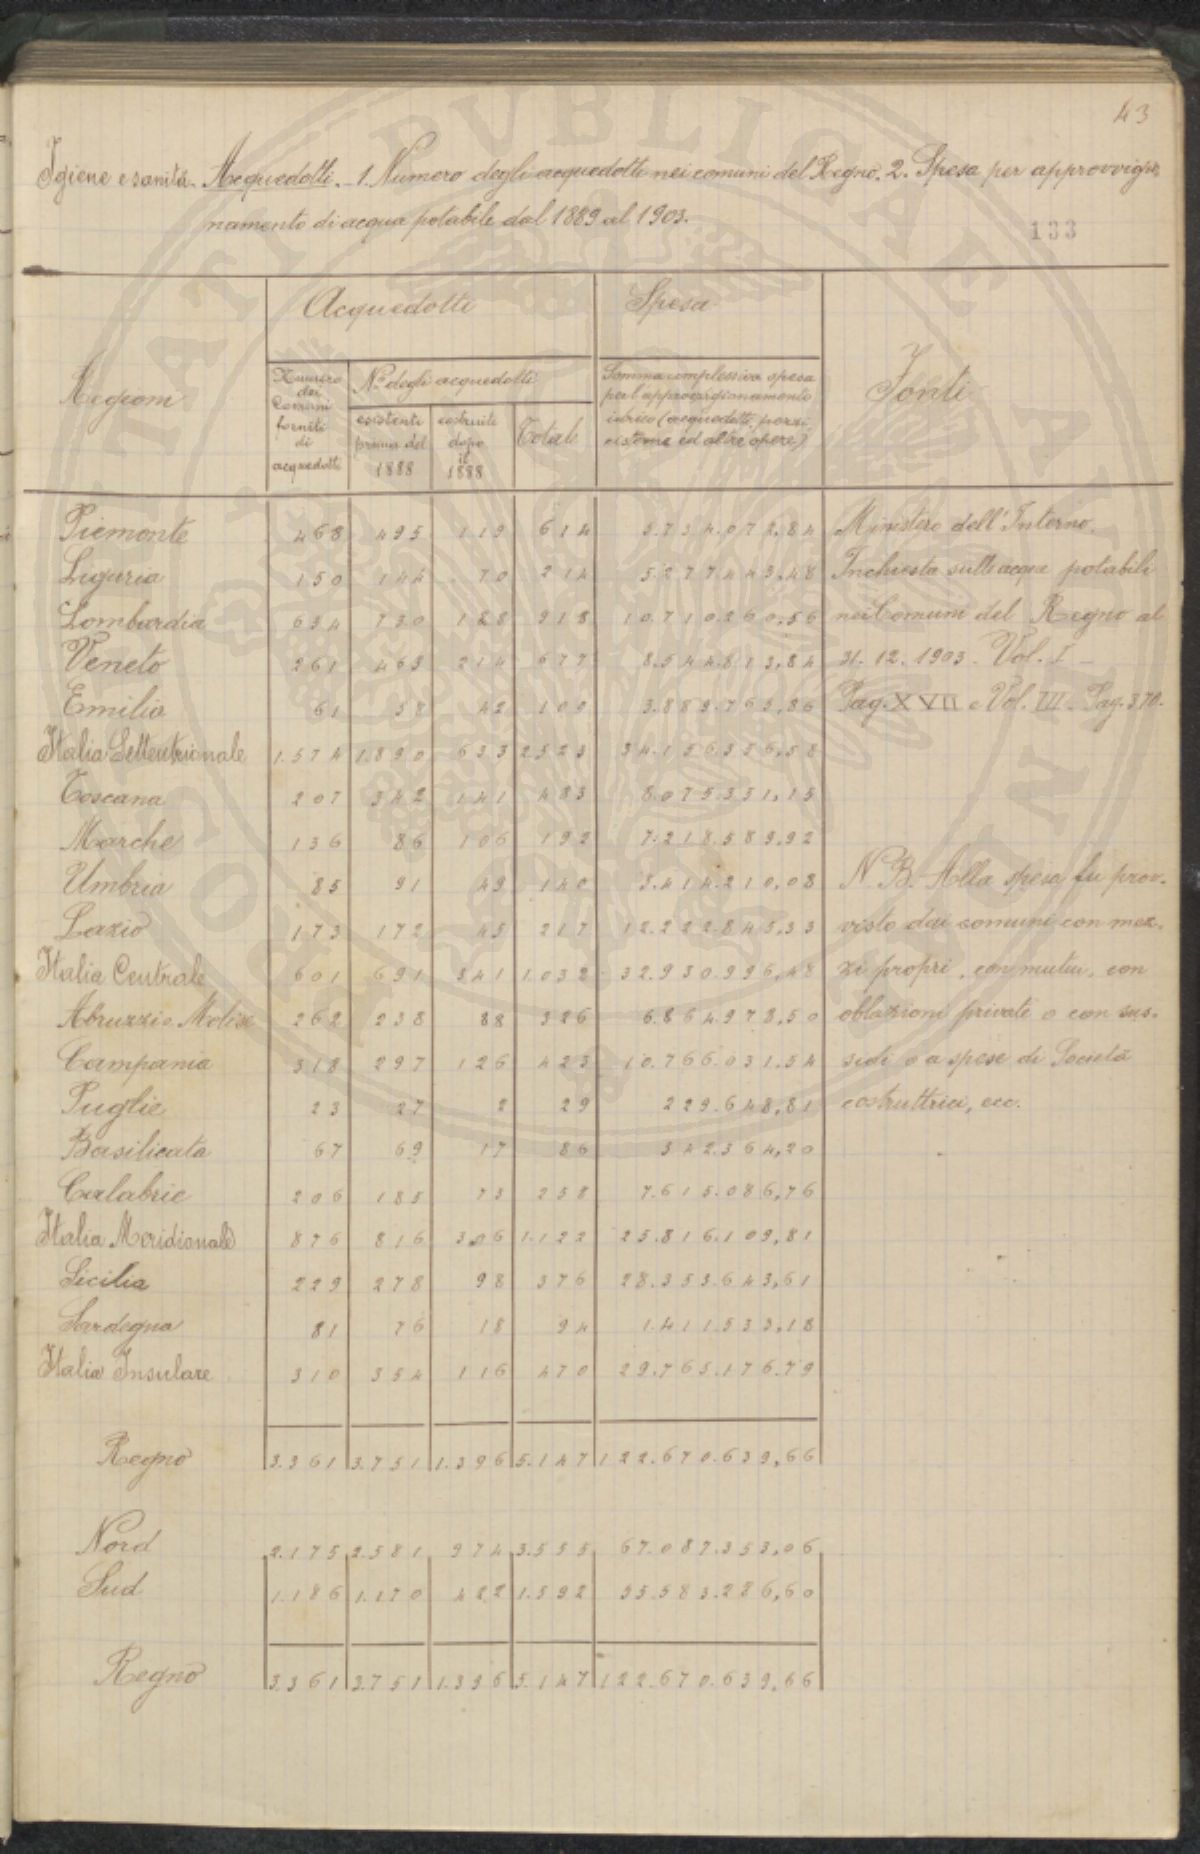 43
Igiene e sanità. Acquedotti. – 1. Numero degli acquedotti nei comuni del Regno. 2. Spesa per approvvigio
namento di acqua potabile dal 1889 al 1903.
133
Regioni
Acquedotti
Spesa
Fonti
Numero dei Comuni forniti di acquedotti
No. degli acquedotti
esistenti prima del 1888
costruite dopo il 1888
Totale
Somma complessiva spesa
per l'approvvigionamento
idrico (acquedotti, pozzi,
cisterne ed altre opere)
Piemonte 468 495 119 614 5.734.072,84
Liguria 150 144 70 214 5.277.443,48
Lombardia 634 730 188 918 10.710.260,56
Veneto 261 463 214 677 8.544.813,84
Emilia 61 58 42 100 3.889.765,86
Italia Settentrionale 1.574 1.890 633 2.523 34.156.356,58
Toscana 207 342 141 483 8.075.351,15
Marche 136 86 106 192 7.218.589,92
Umbria 85 91 49 140 5.414.210,08
Lazio 173 172 45 217 12.222.845,33
Italia Centrale 601 691 341 1.032 32.930.996,48
Abruzzi e Molise 262 238 88 326 6.864.978,50
Campania 318 297 126 423 10.766.031.54
Puglie 23 27 2 29 229.648,81
Basilicata 67 69 17 86 342.364,20
Calabrie 206 185 73 258 7.615.086,76
Italia Meridionale 876 816 306 1.122 25.816.109,81
Sicilia 229 278 98 376 28.353.643,61
Sardegna 81 76 18 94 1.411.533,18
Italia Insulare 310 354 116 470 29.765.176.79
Regno 3.361 3.751 1.396 5.147 122.670.639,66
Nord 2.175 2.581 974 3.555 67.087.353,06
Sud 1.186 1.170 422 1.592 55.583.286,60
Regno 3.361 3.751 1.396 5.147 122.670.639,66
Ministero dell'Interno.
Inchiesta sulle acque potabili
nei Comuni del Regno al
31. 12. 1903. Vol. I –
Pag. XVII e Vol. III – Pag. 370.
N. B. – Alla spesa fu prov-
visto dai comuni con mez-
zi propri, con mutui, con
oblazioni private o con sus-
sidi o a spese di Società
costruttrici, ecc.